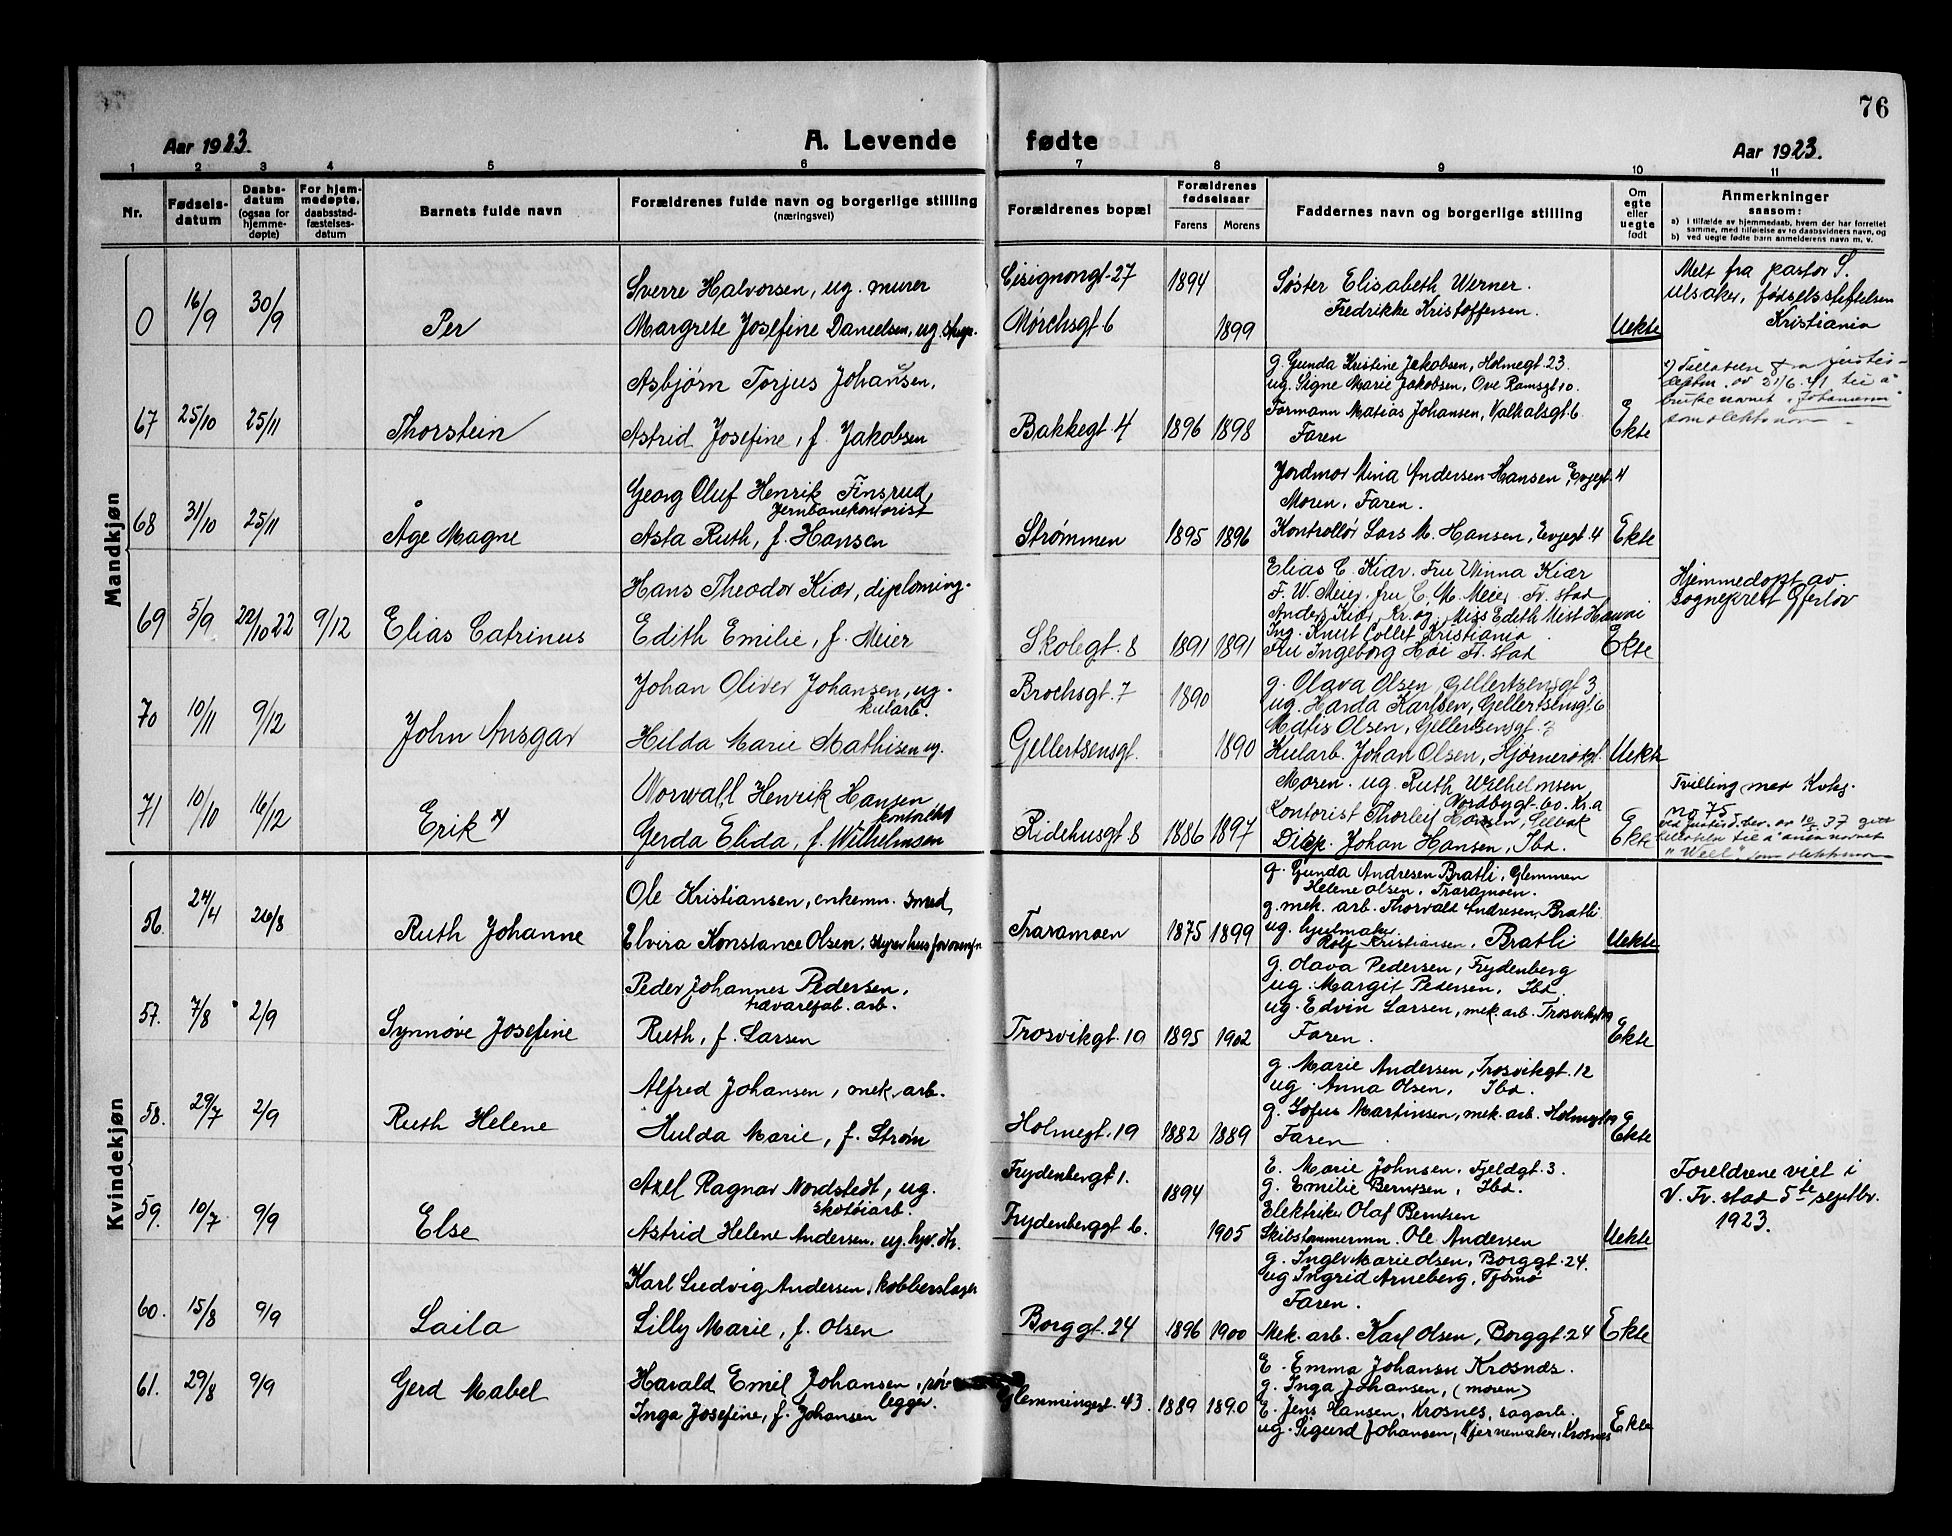 76
Aar 1923.
A. Levende fødte
Aar 1923.
1 2 3 4 5 6 7 8 9 10 11
Nr.
Fødsels-
datum
Daabs-
datum
(ogsaa for
hjemme-
døpte)
For hjem-
medøpte,
daabsstad-
fæstelses-
datum
Barnets fulde navn
Forældrenes fulde navn og borgerlige stilling
(næringsvei)
Forældrenes bopæl
Forældrenes
fødselsaar
Farens Morens
Faddernes navn og borgerlige stilling
Om
egte
eller
uegte
født
Anmerkninger
saasom:
a) i tilfælde av hjemmedaab, hvem der har forrettet
samme, med tilføielse av to daabsvidners navn, og
b) ved uegte fødte barn anmelderens navn m. v.
Mandkjøn
0 16/9 30/9 Per
Sverre Halvorsen, ug. murer
Margrete Josefine Danielsen, ug.
Cisignongt. 27 1894
Mørchsgt 6 1899
Søster Elisabeth Werner.
Fredrikke Kristoffersen.
Uekte
Melt fra pastor S.
Ulsaker, fødselsstiftelsen
Kristiania
67 25/10 25/11 Thorstein
Asbjørn Torjus Johansen,
Astrid Josefine, f. Jakobsen
Bakkegt 4 1896 1898
g. Gunda Kristine Jakobsen, Holmegt 23.
ug. Signe Marie Jakobsen, Ove Ramsgt 10.
Formann Matias Johansen, Valkalsgt 6
Faren
Ekte
Tillatelse fra justis-
deptm. av 21/6. 41 til å
bruke navnet
som slektsnavn
68 31/10 25/11 Åge Magne
Georg Oluf Henrik Finsrud,
Jernbanekontorist
Asta Ruth, f. Hansen
Strømmen 1895 1896
Jordmor Mina Andersen Hansen, Evjegt. 4
Moren, Faren.
Kontrollør Lars M. Hansen, Evjegt. 4
Ekte
69 5/9 22/10 22 9/12 Elias Catrinus
Hans Theodor Kiær, diploming.
Edith Emilie, f. Meier
Skolegt. 8 1891 1891
Elias C. Kiær. Fru Minna Kiær
F. W. Meier, fru C. M. Meier Fr. stad
Anders Kiær, Kr. og Miss Edith
Ing. Knut Collet Kristiania
Fru Ingeborg Høe Fr. stad
Ekte
Hjemmedøpt av
sogneprest Gjerløv
70 10/11 9/12 John Ansgar
Johan Oliver Johansen, ug.
kularb.
Hilda Marie Mathisen ug.
Brochsgt. 7 1890
Gellertsensgt. 1890
g. Olava Olsen, Gellertsensgt 3
ug. Harda Karlsen, Gellertsensgt 6
Matis Olsen, Gellertsensgt. 3
Kularb. Johan Olsen,
Uekte
71 10/10 16/12 Erik x)
Worwall Henrik Hansen
kontorist
Gerda Elida, f. Wilhelmsen
Ridehusgt. 8 1886 1897
Moren. ug. Ruth Wilhelmsen
Nordbygt. 60. Kr.a
Kontorist Thorleif Hansen, Selbak
Disp. Johan Hansen, Ibd.
Ekte
Tvilling med Kvks.
No 75
ved justisd. bev. av 10/5 37 gitt
tillatelse til å anta navnet
"Well" som slektsnavn
Kvindekjøn
56. 24/4 26/8 Ruth Johanne
Ole Kristiansen, enkemn. smed,
Elvira Konstance Olsen, styrer hus for
Traramoen 1875 1899
g. Gunda Andresen Bratli, Glemmen
Helene Olsen, Traramoen.
g. mek. arb. Thorvald Andresen, Bratli
ug. hjulmaker
Rolf Kristiansen, Bratli
Uekte
57. 7/8 2/9 Synnøve Josefine
Peder Johannes Pedersen,
trævarefab. arb.
Ruth, f. Larsen
Trosvikgt. 19 1895 1902
g. Olava Pedersen, Frydenberg
ug. Margit Pedersen, Ibd.
ug. Edvin Larsen, mek. arb. Trosvikgt 19
Faren.
Ekte
58. 29/7 2/9 Ruth Helene
Alfred Johansen, mek. arb.
Hulda Marie, f. Strøm
Holmegt. 19 1882 1889
g. Marie Andersen, Trosvikgt. 12
ug. Anna Olsen, Ibd.
g. Sofus Martinsen, mek. arb. Holmegt 19
Faren
Ekte
59. 10/7 9/9 Else
Axel Ragnar Nordstedt, ug.
skotøiarb.
Astrid Helene Andersen, ug.
Frydenbergt 1. 1894
Frydenberggt 6. 1905
E. Marie Johnsen, Fjeldgt. 3.
g. Emilie Berntsen, Ibd.
Elektriker Olaf Berntsen
Skibstømmermn. Ole Andersen
Uekte
Foreldrene viet i
V. Fr. stad 5te septbr.
1923.
60. 15/8 9/9 Laila
Karl Ludvig Andersen, kobberslager
Lilly Marie, f. Olsen
Borggt. 24 1896 1900
g. Inglv Marie Olsen, Borggt. 24.
ug Ingrid Arneberg, Tjømø
Faren.
Mek. arb. Karl Olsen, Borggt. 24
Ekte
61. 29/8 9/9 Gerd Mabel
Harald Emil Johansen, rør-
legger.
Inga Josefine, f. Johansen
Glemmingegt. 43. 1889 1890
E. Emma Johansen Krosnæs.
g. Inga Johansen, (moren)
E. Jens Hansen, Krosnes, sagarb.
ug. Sigurd Johansen, Kjernemaker, Krosnes
Ekte